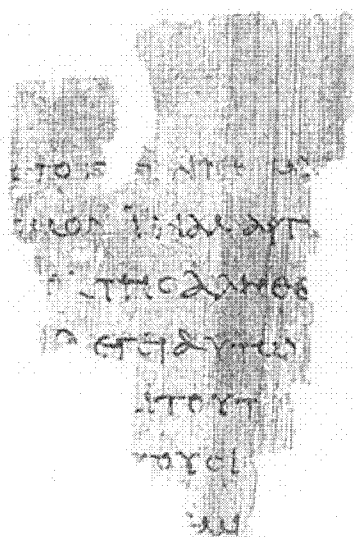 ΤΟΓ ΝΝΗΜΑΙ
CΜΟΝ ΙΝΑ ΜΑΡΤ
ΤΗCΑΛΗΘΕ
ΛΕΓΕΙ ΑΥΤΩ
ΑΙ ΤΟΥΤ
ΤΟΥC Ι
ΜΙ